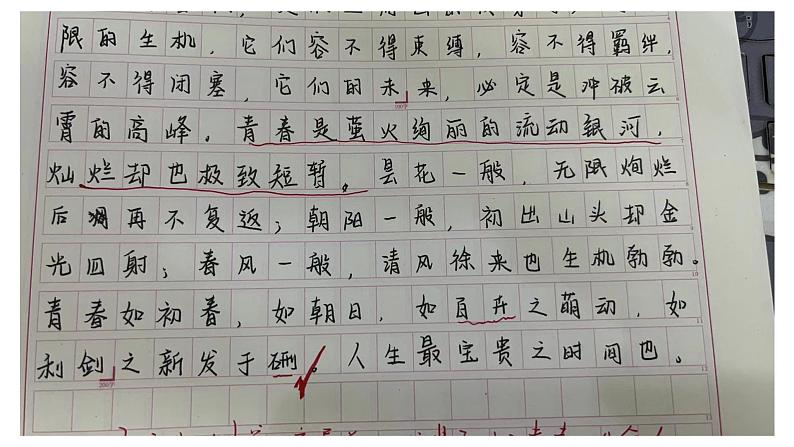 限的生机，它们容不得束缚，容不得羁绊，
容不得闭塞，它们的未来，必定是冲破云
霄的高峰。青春是萤火绚丽的流动银河，
灿烂却也极致短暂。昙花一般，无限绚烂
后凋再不复返；朝阳一般，初出山头却金
光四射；春风一般，清风徐来也生机勃勃。
青春如初春，如朝日，如百卉之萌动，如
利剑之新发于硎。人生最宝贵之时间也。